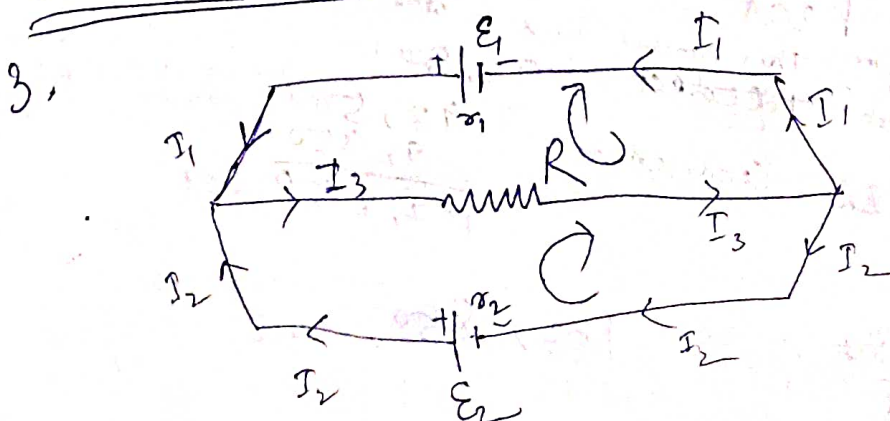 3.
+ ε₁ −
r₁
I₁
I₁
I₁
I₃
R
I₃
I₂
I₂
+ r₂ −
ε₂
I₂
I₂